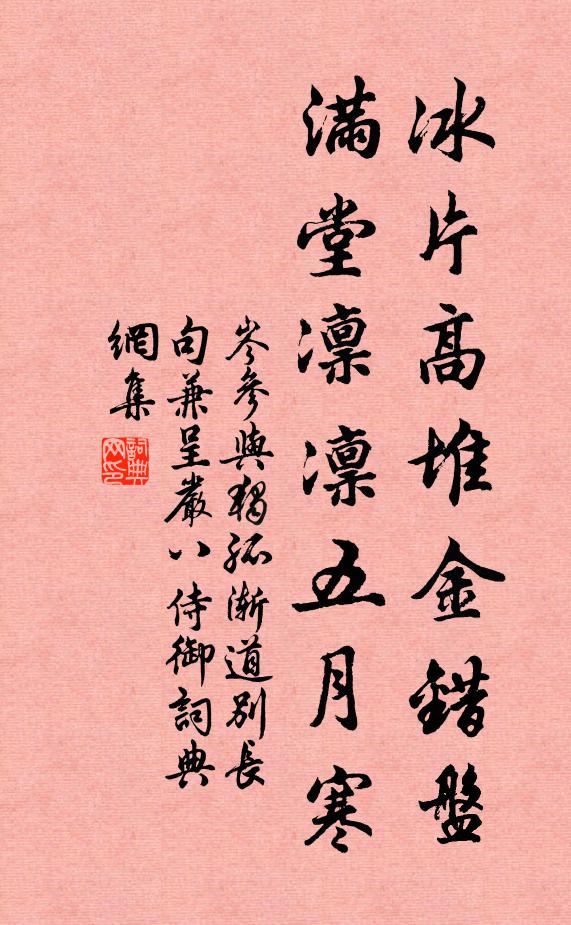 冰片高堆金錯盤
滿堂凛凛五月寒
岑參與獨孤漸道別長
句兼呈嚴八侍御詞典
網集
詞典
网印